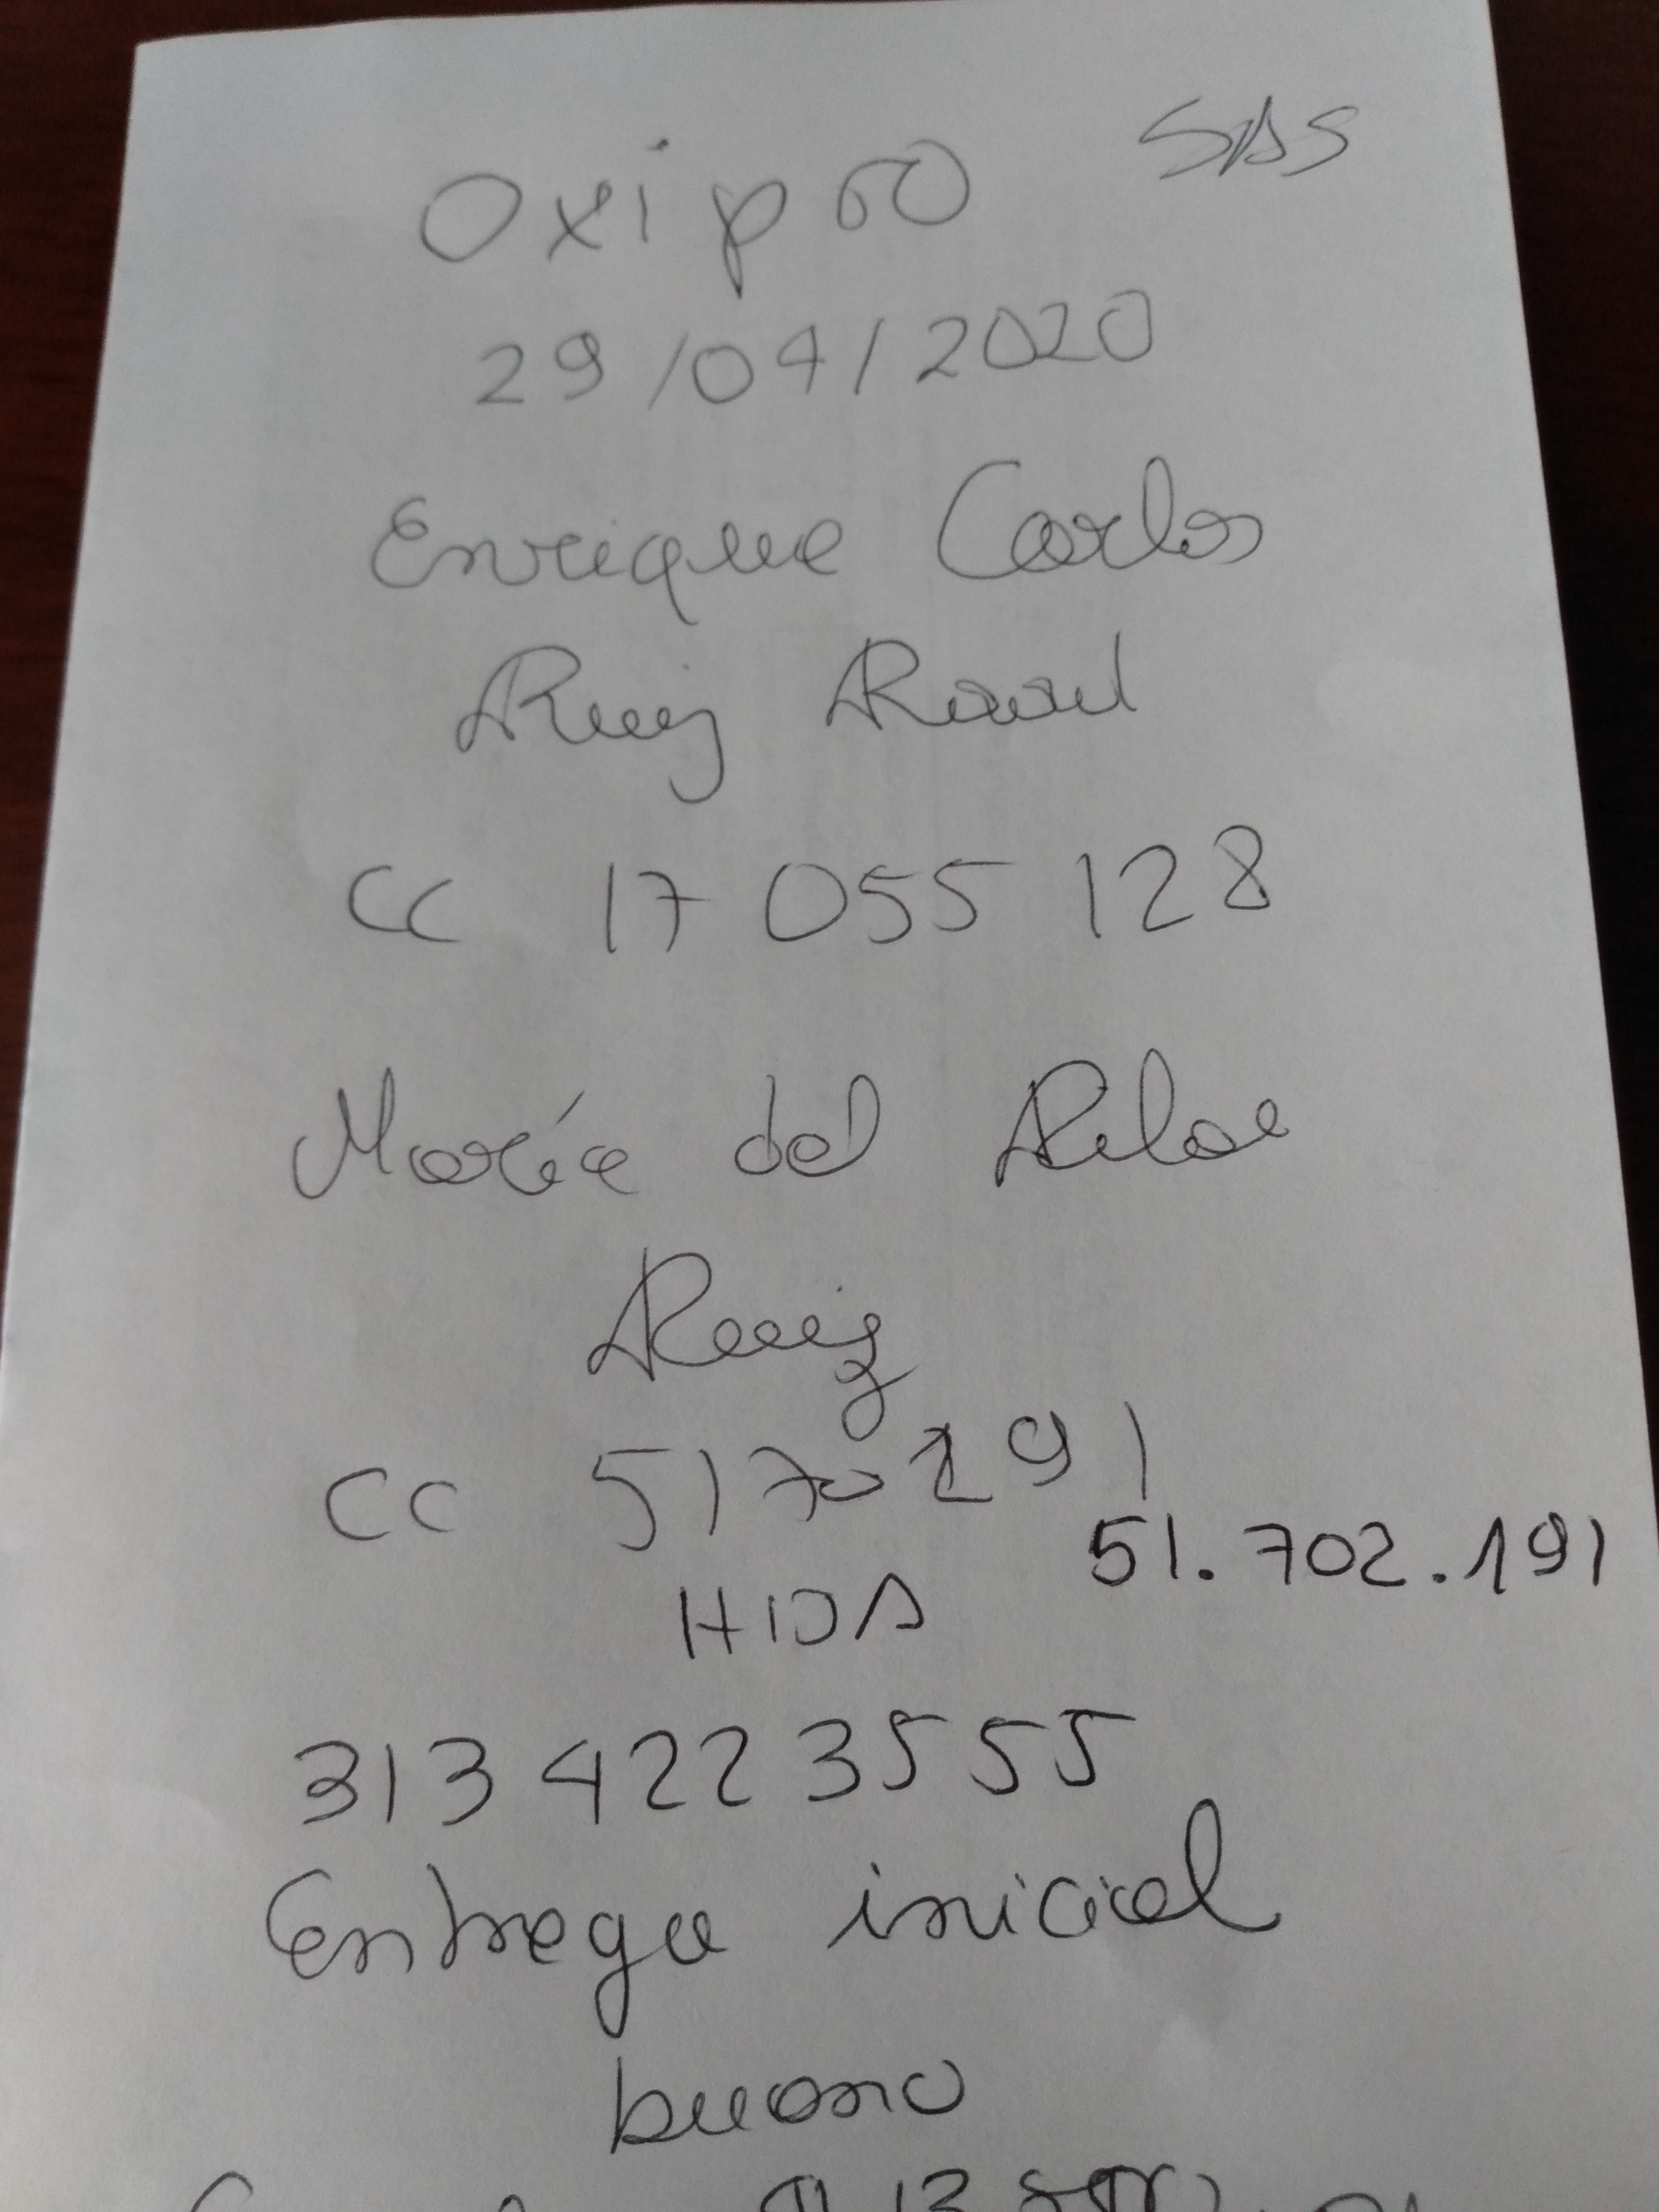 Oxipro SAS
29/04/2020
Enrique Carlos
Ruiz
CC 17 055 128
María del Pilar
Ruiz
CC 5170291
51.702.191
HIJA
313 422 3555
Entrega inicial
bueno